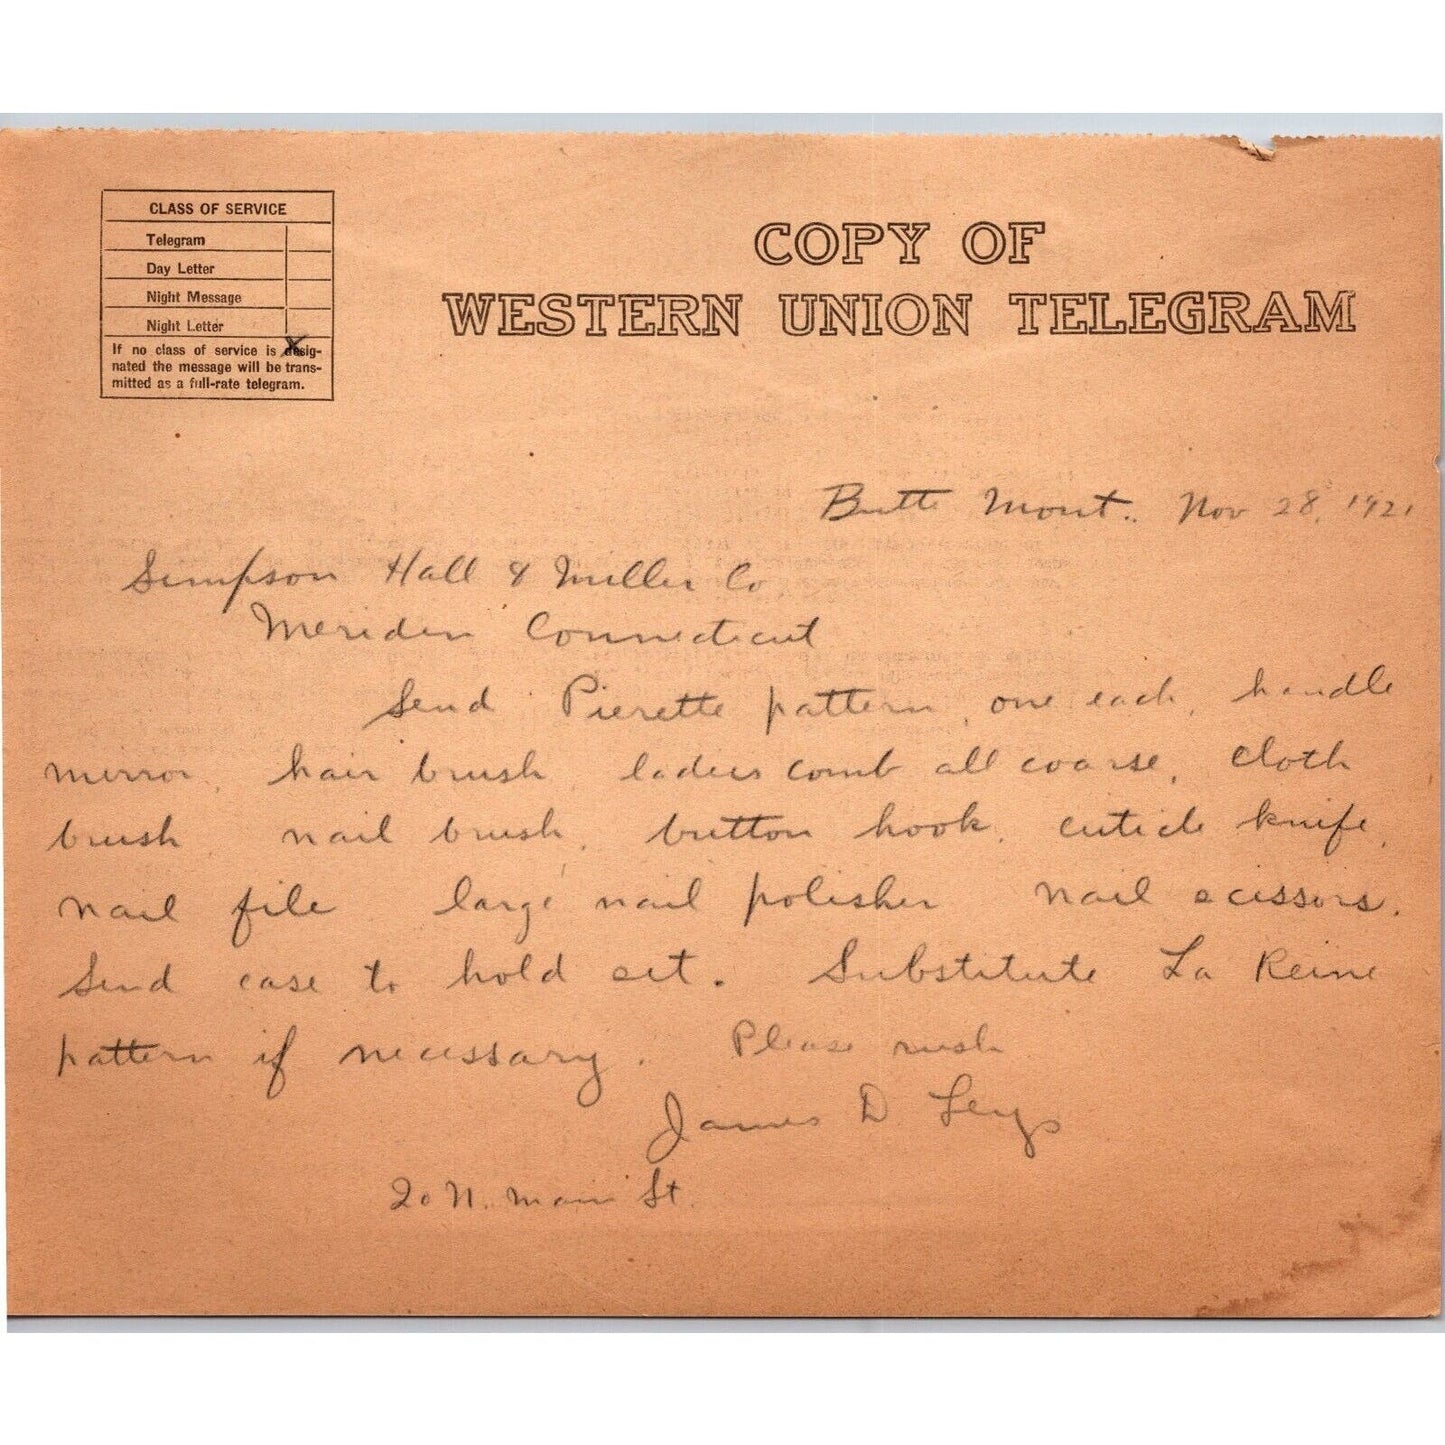 CLASS OF SERVICE
Telegram
Day Letter
Night Message
Night Letter X
If no class of service is desig-
nated the message will be trans-
mitted as a full-rate telegram.
COPY OF
WESTERN UNION TELEGRAM
Butte Mont.. Nov 28, 1921
Simpson Hall & Miller Co
Meriden Connecticut
Send Pierette pattern, one each, handle
mirror, hair brush, ladies comb all coarse, cloth
brush, nail brush, button hook, cuticle knife,
nail file large nail polisher nail scissors.
Send case to hold set. Substitute La Reine
pattern if necessary. Please rush
James D. Leys
20 N. Main St.